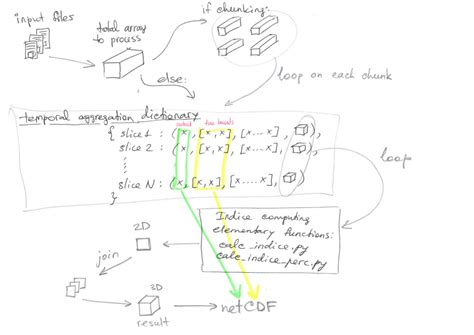 input files
total array
to process
if chunking:
else:
loop on each chunk
temporal aggregation dictionary
time bounds
{ slice 1 : (x, [x, x], [x...x], ),
slice 2 : (x, [x, x], [x...x], ),
slice N : (x, [x, x], [x...x], )
}
loop
Indice computing
elementary functions:
calc_indice.py
calc_indice_perc.py
2D
join
3D
result
netCDF